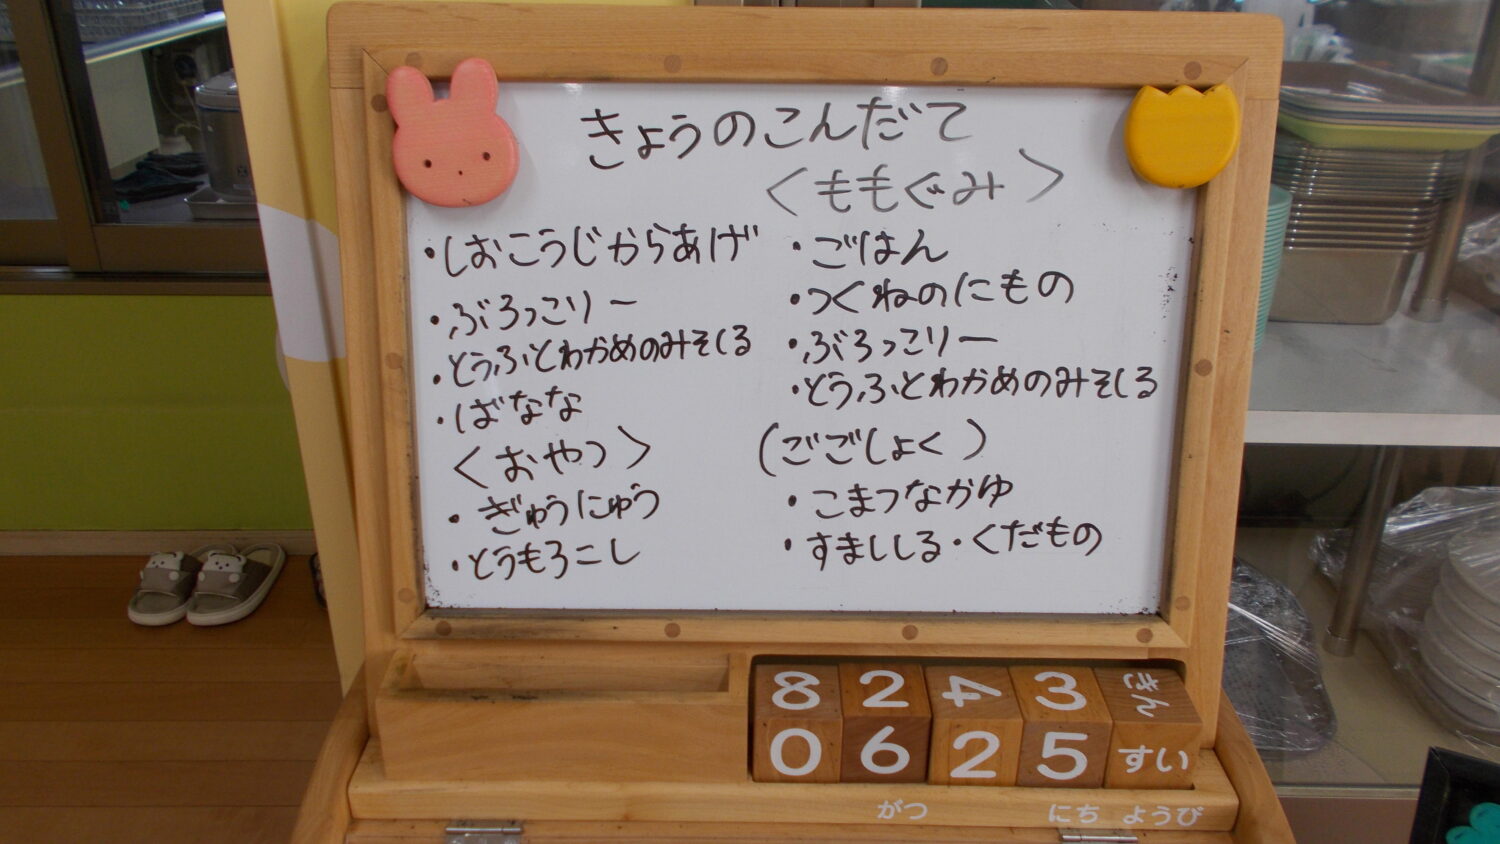 きょうのこんだて
・しおこうじからあげ
・ぶろっこりー
・とうふとわかめのみそしる
・ばなな
＜おやつ＞
・ぎゅうにゅう
・とうもろこし
＜ももぐみ＞
・ごはん
・つくねのにもの
・ぶろっこりー
・とうふとわかめのみそしる
(ごごしょく)
・こまつながゆ
・すましじる・くだもの
8 2 4 3 きん
0 6 2 5 すい
がつ にち ようび